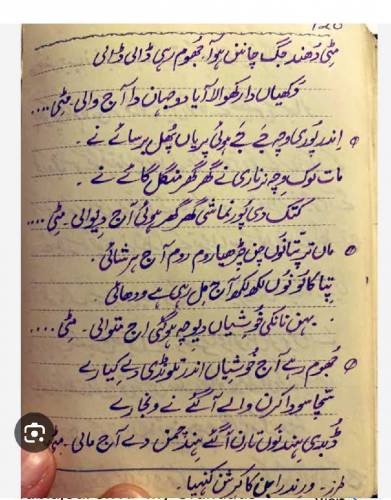 مٹی دھند جگ چانن ہوآ، جھوم رہی ڈالی ڈالی
دکھیاں دا رکھوالا آیا دو جہان دا آج والی۔ مٹی....
اندر پوری وچہ جے جے ہوئی پریاں پھل برسائے نے۔
مات لوک وچہ نر ناری نے گھر گھر منگل گائے نے۔
کتک دی پورنماشی گھر گھر ہوئی آج دیوالی۔ مٹی....
ماں ترپتا نوں چن چڑھیا روم روم آج ہرشائی۔
پتا کالو نوں لکھ لکھ آج مل رہی ہے ودھائی
بہن نانکی خوشیاں دیوچہ ہوگئی اج متوالی۔ مٹی....
جھوم رہے آج خوشیاں اندر تلونڈی دے کیارے
سچا سودا کرن والے آگئے نے ونجارے
ڈبدی ہند نوں تارن آگئے ہند چمن دے آج مالی۔ مٹی
طرز۔ ورندرابن کا کرشن کنہیا۔